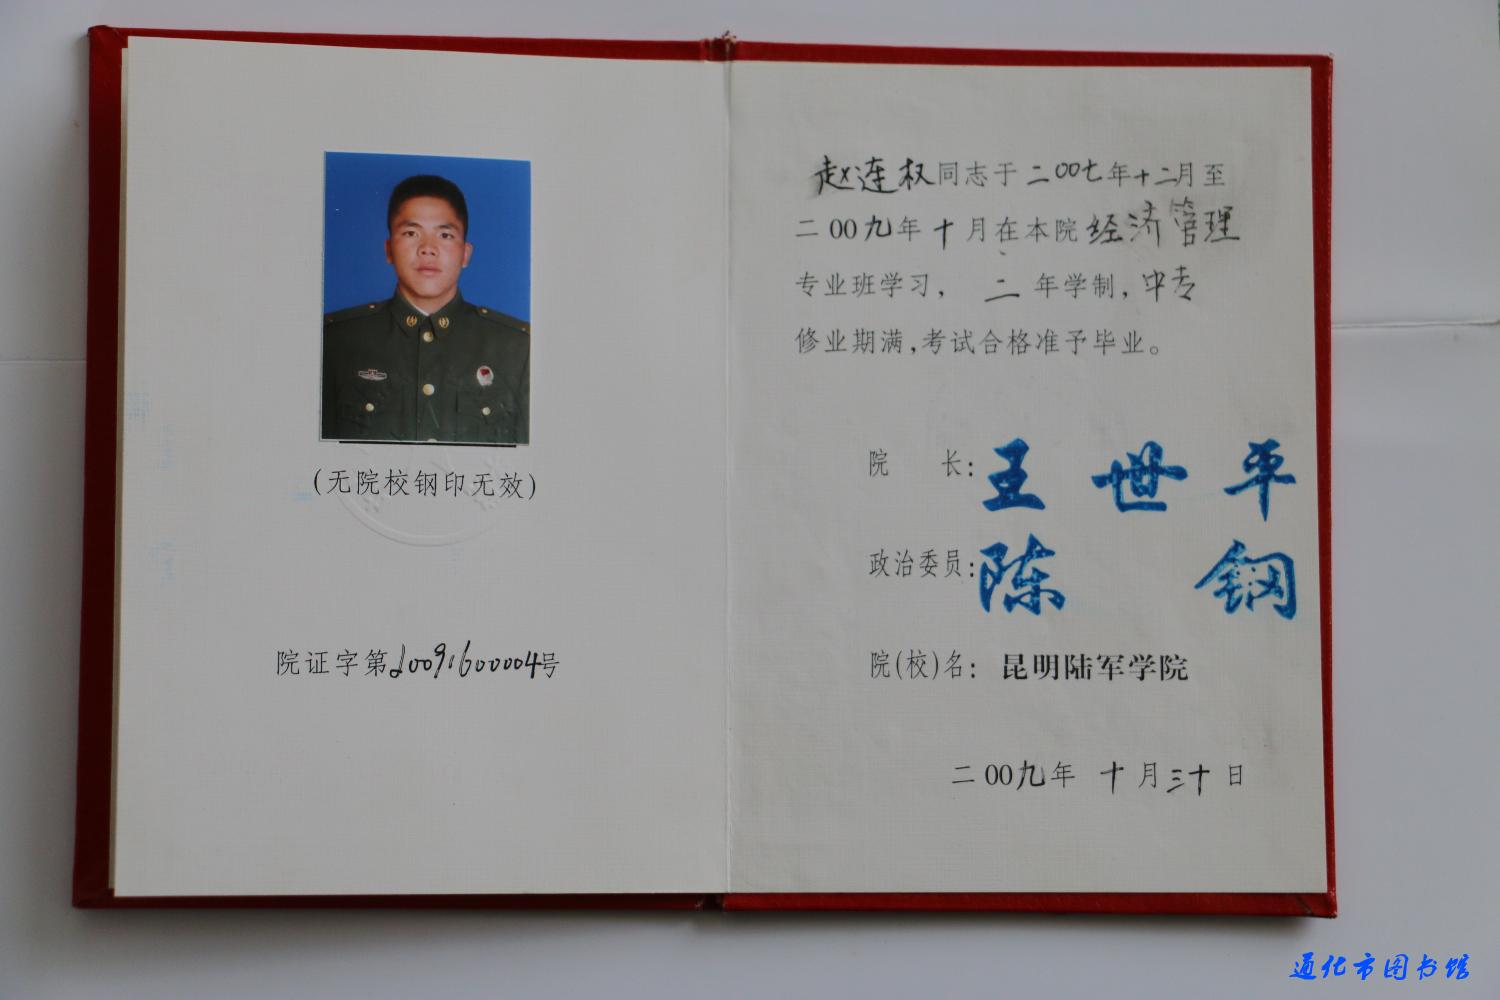 (无院校钢印无效)
院证字第20091600004号
赵连权同志于二00七年十二月至
二00九年十月在本院经济管理
专业班学习,二年学制,中专
修业期满,考试合格准予毕业。
院长:王世平
政治委员:陈钢
院(校)名:昆明陆军学院
二00九年十月三十日
通化市图书馆